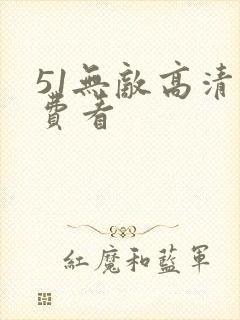 51無敵高清
費看
紅魔和藍軍